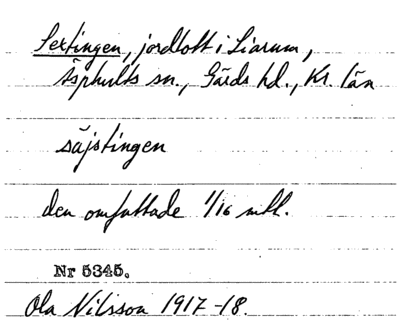 Sextingen, jordlott i Liarum,
Äsphults sn., Gärds hd., Kr. län
säjstingen
den omfattade 1/16 mtl.
Nr 5345.
Ola Nilsson 1917-18.